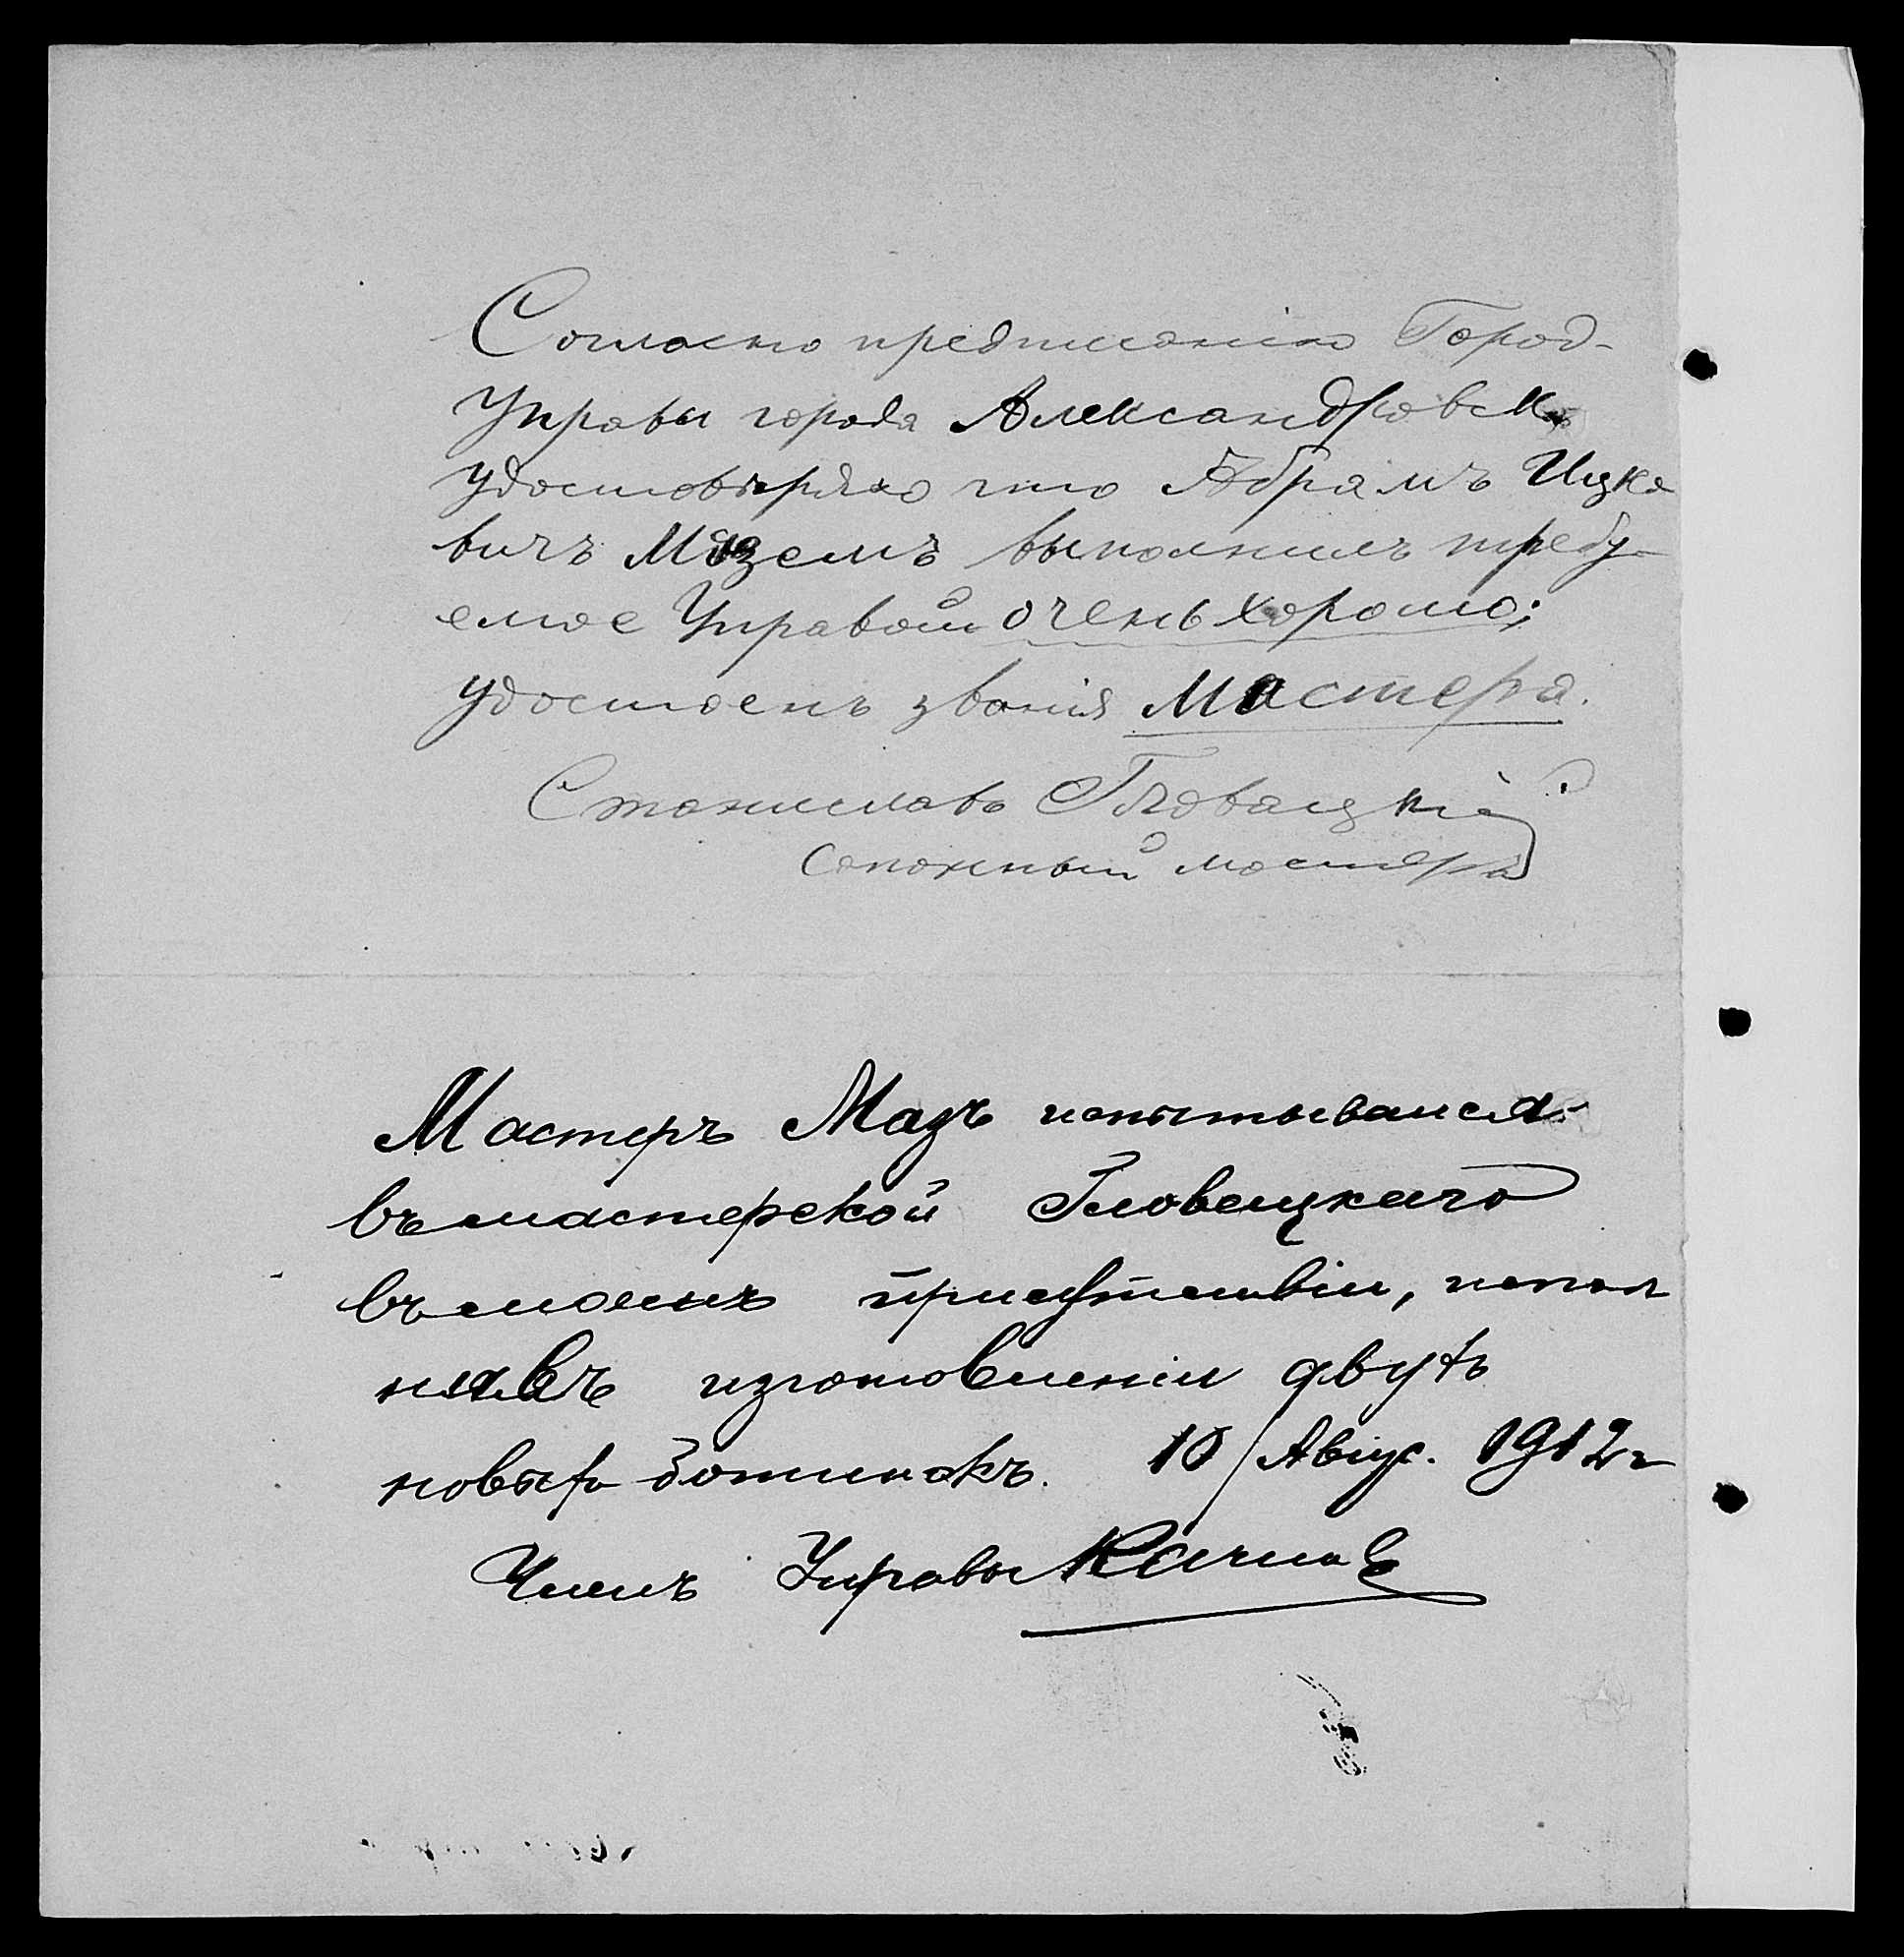 Согласно предписанію Город-
Управы города Александровска
удостовѣряю что Абрамъ Ицко
вичъ Маземъ выполнилъ требу-
емое Управой очень хорошо;
удостоенъ званія Мастера.
Станиславъ Гловацкій
Сапожный мастеръ
Мастеръ Мазъ испытывался
въ мастерской Гловецкаго
въ моемъ присутствіи, испол
нявъ изготовленіи двухъ
новыхъ ботинокъ. 10/Авгус. 1912 г
Членъ Управы